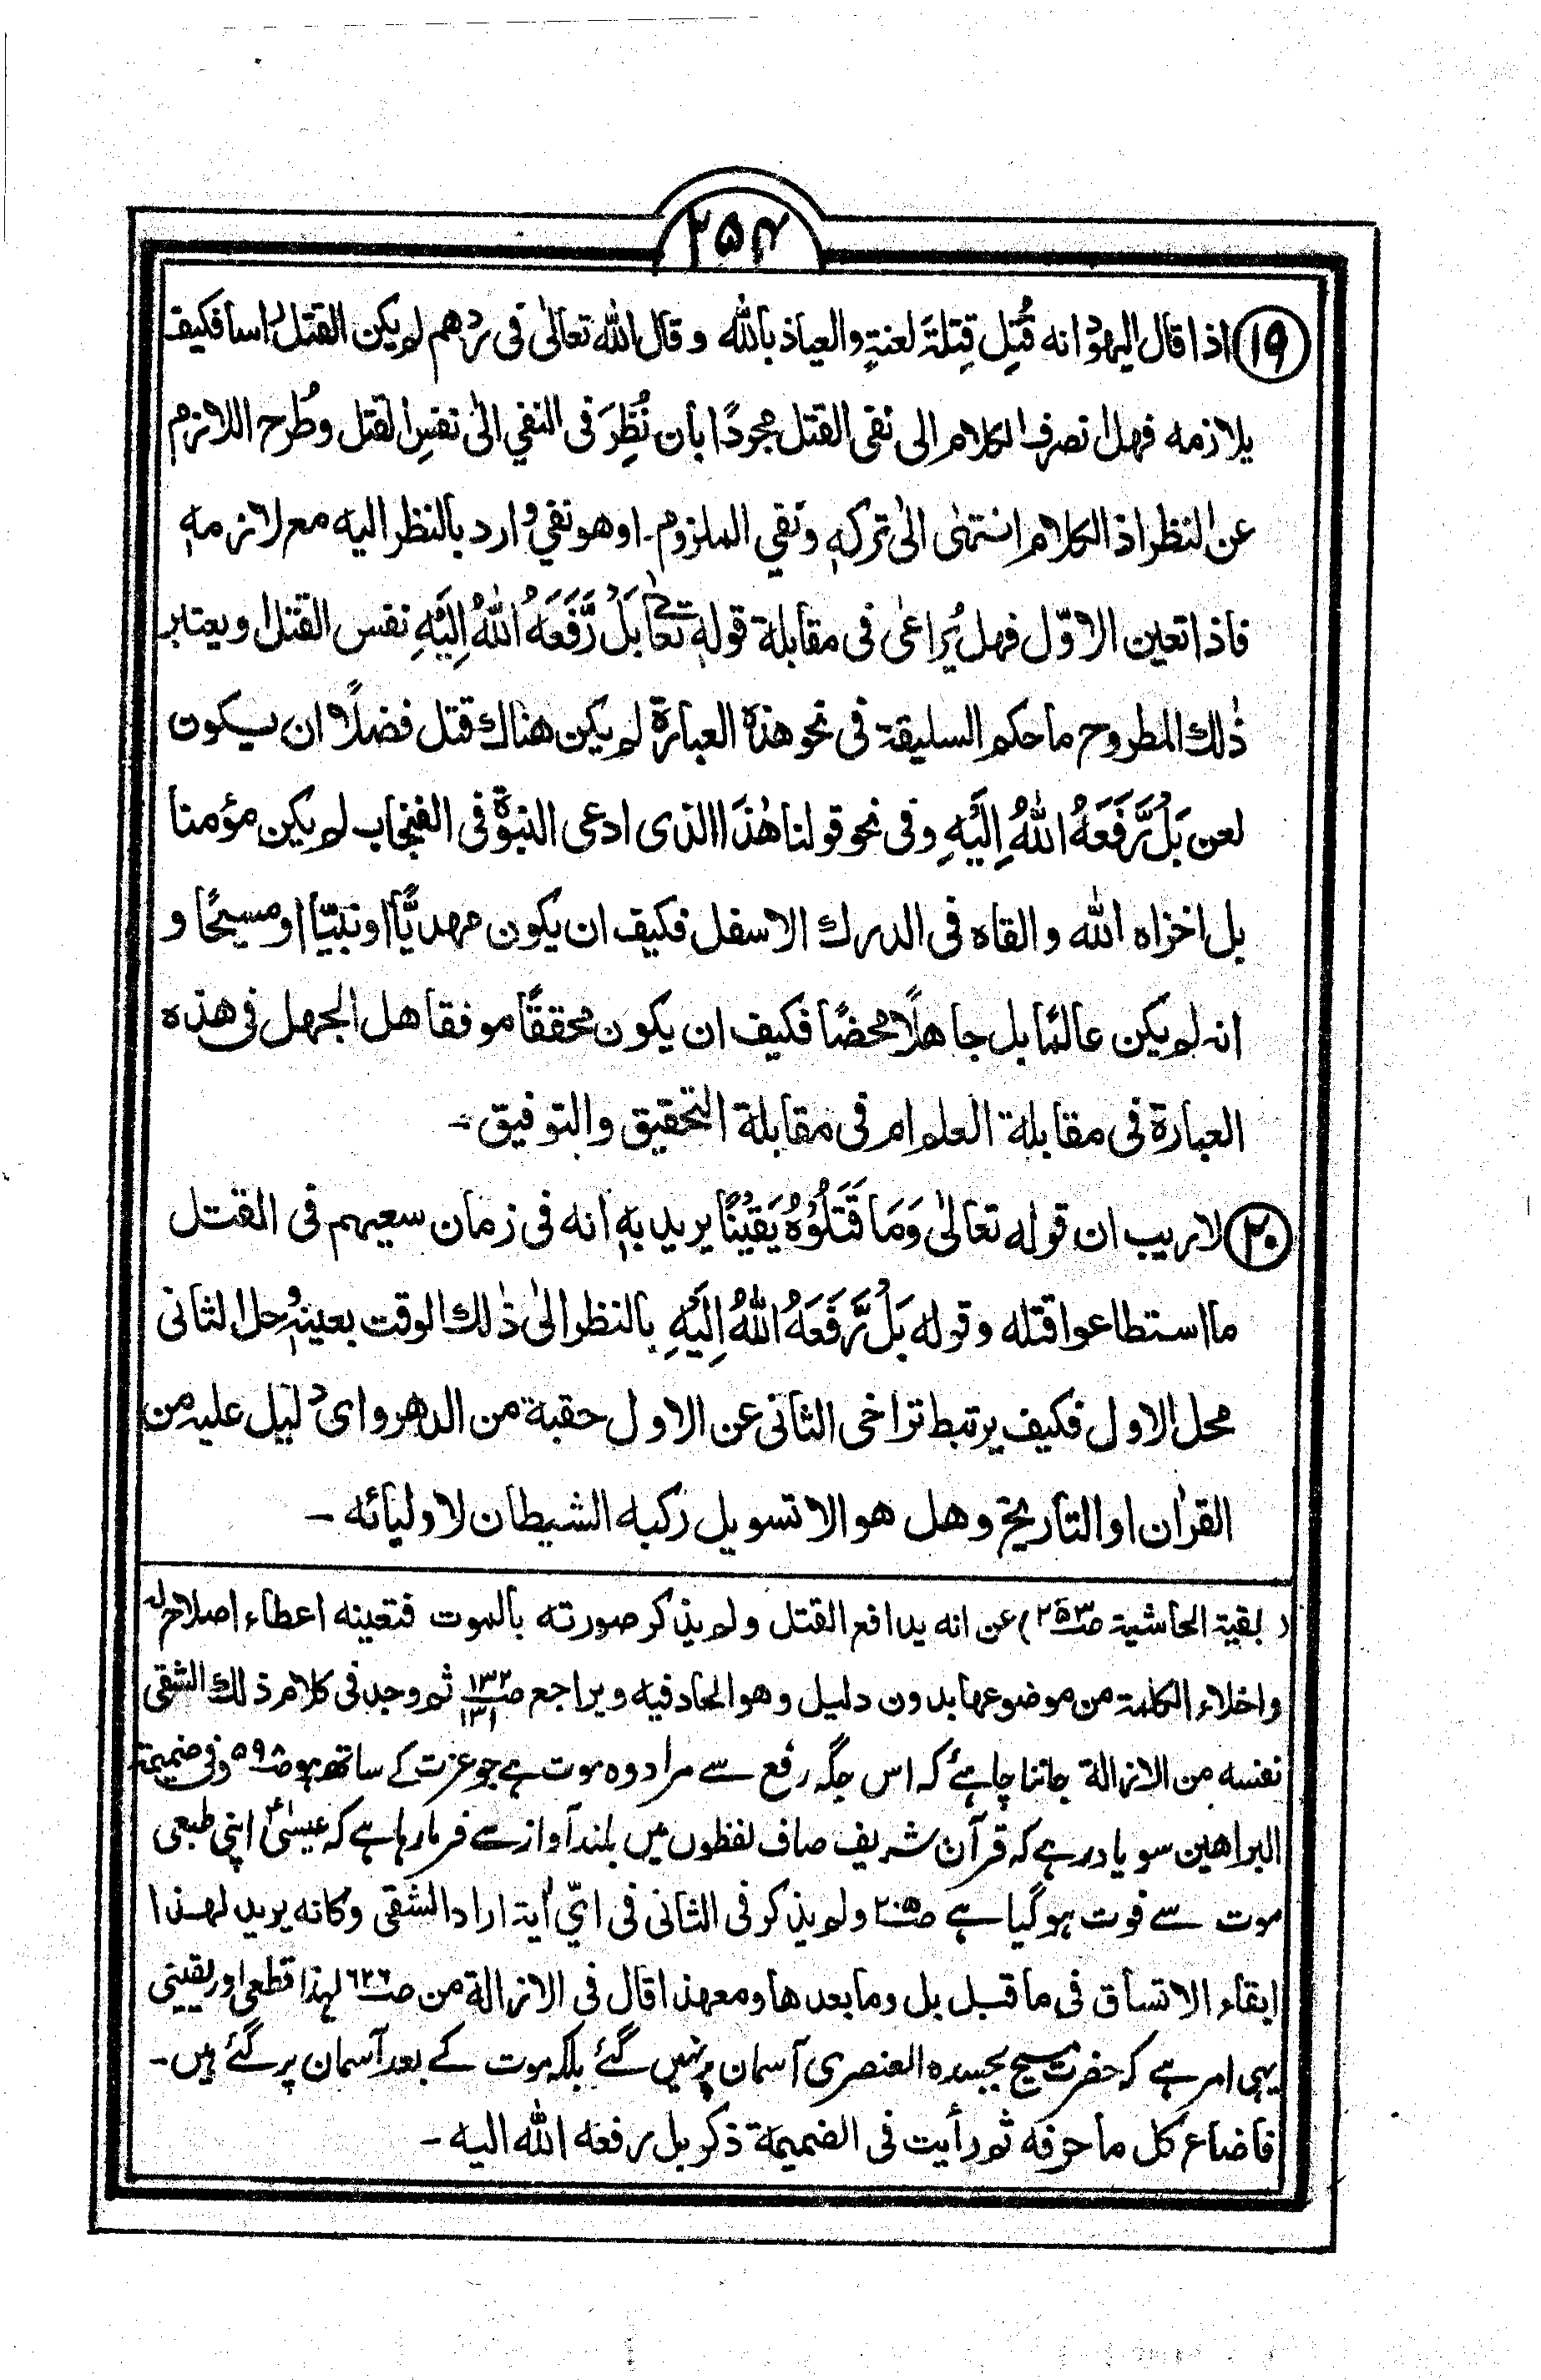 ۲۵۴
⑲ اذا قال اليهود انه قُتِل قِتلةَ لعنةٍ والعياذ بالله وقال الله تعالىٰ فى ردهم لم يكن القتل راسا فكيف
يلازمه فهل انصرف الكلام الى نفى القتل مجردًا بأن نُظِرَ فى النفي الىٰ نفسِ القتل وطُرح اللازم
عن النظر اذ الكلام انتهىٰ الىٰ تركهٖ ونفي الملزوم۔ اوهو نفي وارد بالنظر اليه مع لازمهٖ
فاذا تعين الاوّل فهل يُراعىٰ فى مقابلة قولهٖ تعالےٰ بَلْ رَّفَعَهُ اللّٰهُ اِلَيْهِ نفس القتل او يعتبر
ذٰلك المطروح ما حكم السليقة فى نحو هذه العبارة لم يكن هناك قتل فضلًا ان يكون
لعن بَلْ رَّفَعَهُ اللّٰهُ اِلَيْهِ وفى نحو قولنا هٰذا الذى ادعى النبوة فى الفنجاب لم يكن مؤمنا
بل اخزاه الله والقاه فى الدرك الاسفل فكيف ان يكون مهديًّا او نبيّا او مسيحًا و
انہ لم يكن عالمًا بل جاهلًا محضًا فكيف ان يكون محققًا موفقا هل الجهل فى هذه
العبارة فى مقابلة العلم ام فى مقابلة التحقيق والتوفيق۔
⑳ لاريب ان قوله تعالىٰ وَمَا قَتَلُوْهُ يَقِيْنًا يريد بهٖ انه فى زمان سعيهم فى القتل
ما استطاعوا قتله وقوله بَلْ رَّفَعَهُ اللّٰهُ اِلَيْهِ بالنظر الىٰ ذٰلك الوقت بعينهٖ وحل الثانى
محل الاول فكيف يرتبط تراخى الثانى عن الاول حقبة من الدهر واى دليل عليه من
القراٰن او التأريخ وهل هو الا تسويل ركبه الشيطان لاوليائه ۔
(بقية الحاشية صـ۲۵۳) عن انه يدافع القتل ولم يذكر صورته بالموت فتعينه اعطاء اصلاح له
واخلاء الكلمة من موضوعها بدون دليل وهو الحاد فيه ويراجع صـ۱۳۲ ۱۳۱ ثم وجد فى كلام ذلك الشقى
نفسه من الازالة جاننا چاہئے کہ اس جگہ رفع سے مراد وہ موت ہے جو عزت کے ساتھ ہو صـ۵۹۸ وفى ضميمة
البراهين سو یاد رہے کہ قرآن شریف صاف لفظوں میں بلند آواز سے فرما رہا ہے کہ عیسیٰؑ اپنی طبعی
موت سے فوت ہو گیا ہے صـ۲۰۵ ولم يذكر فى الثانى فى ايّ اٰية اراد الشقى وكانه يريد لهذا
ابقاء الاتساق فى ما قبل بل وما بعدها ومعهذا قال فى الازالة من صـ۶۲۶ لہذا قطعی اور یقینی
یہی امر ہے کہ حضرت مسیح بجسدہ العنصری آسمان پر نہیں گئے بلکہ موت کے بعد آسمان پر گئے ہیں۔
فاضاع كل ما حرفه ثم رأيت فى الضميمة ذكر بل رفعه الله اليه ۔